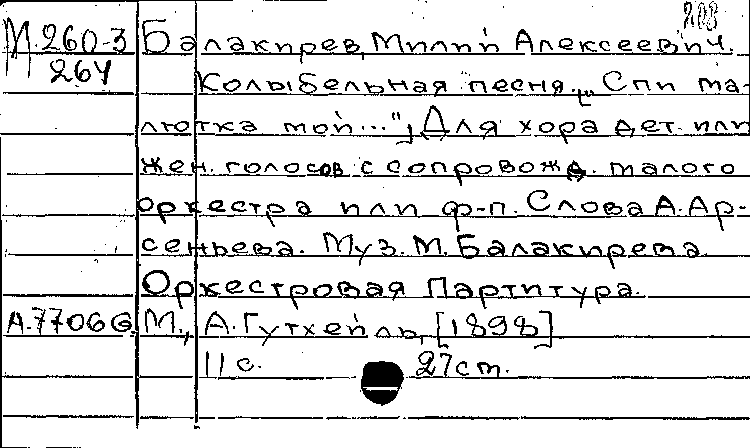 208
М.260-3 Балакирев, Милий Алексеевич.
264
Колыбельная песня. ["Спи ма-
лютка мой..."] Для хора дет. или
жен. голосов с сопровожд. малого
оркестра или ф-п. Слова А. Ар-
сеньева. Муз. М. Балакирева
Оркестровая Партитура.
А.7706G. М., А. Гутхейль, [1898]
11 с. 27 см.